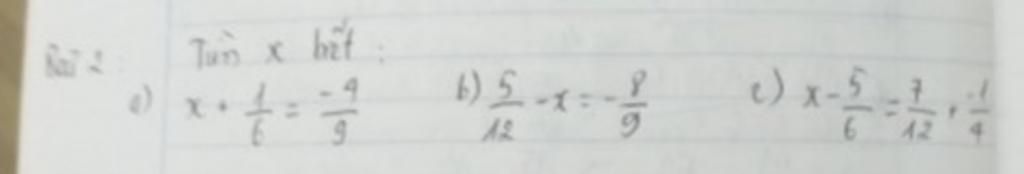 Bài 2: Tìm x biết:
a) x + 1/6 = -4/9 b) 5/12 - x = -8/9 c) x - 5/6 = 7/12 + -1/4